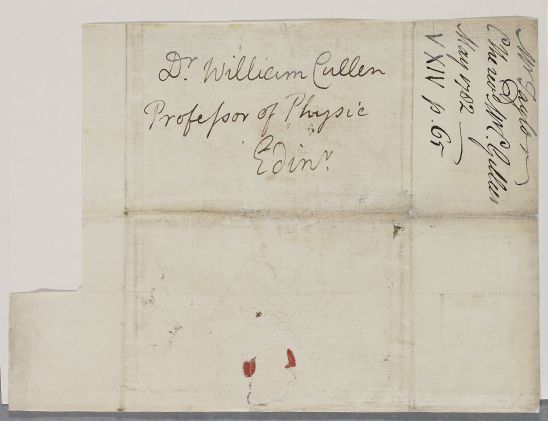 Dr. William Cullen
Profeſsor of Physic
Edinr.
Mr Taylor
May 1782
V XIV p. 65